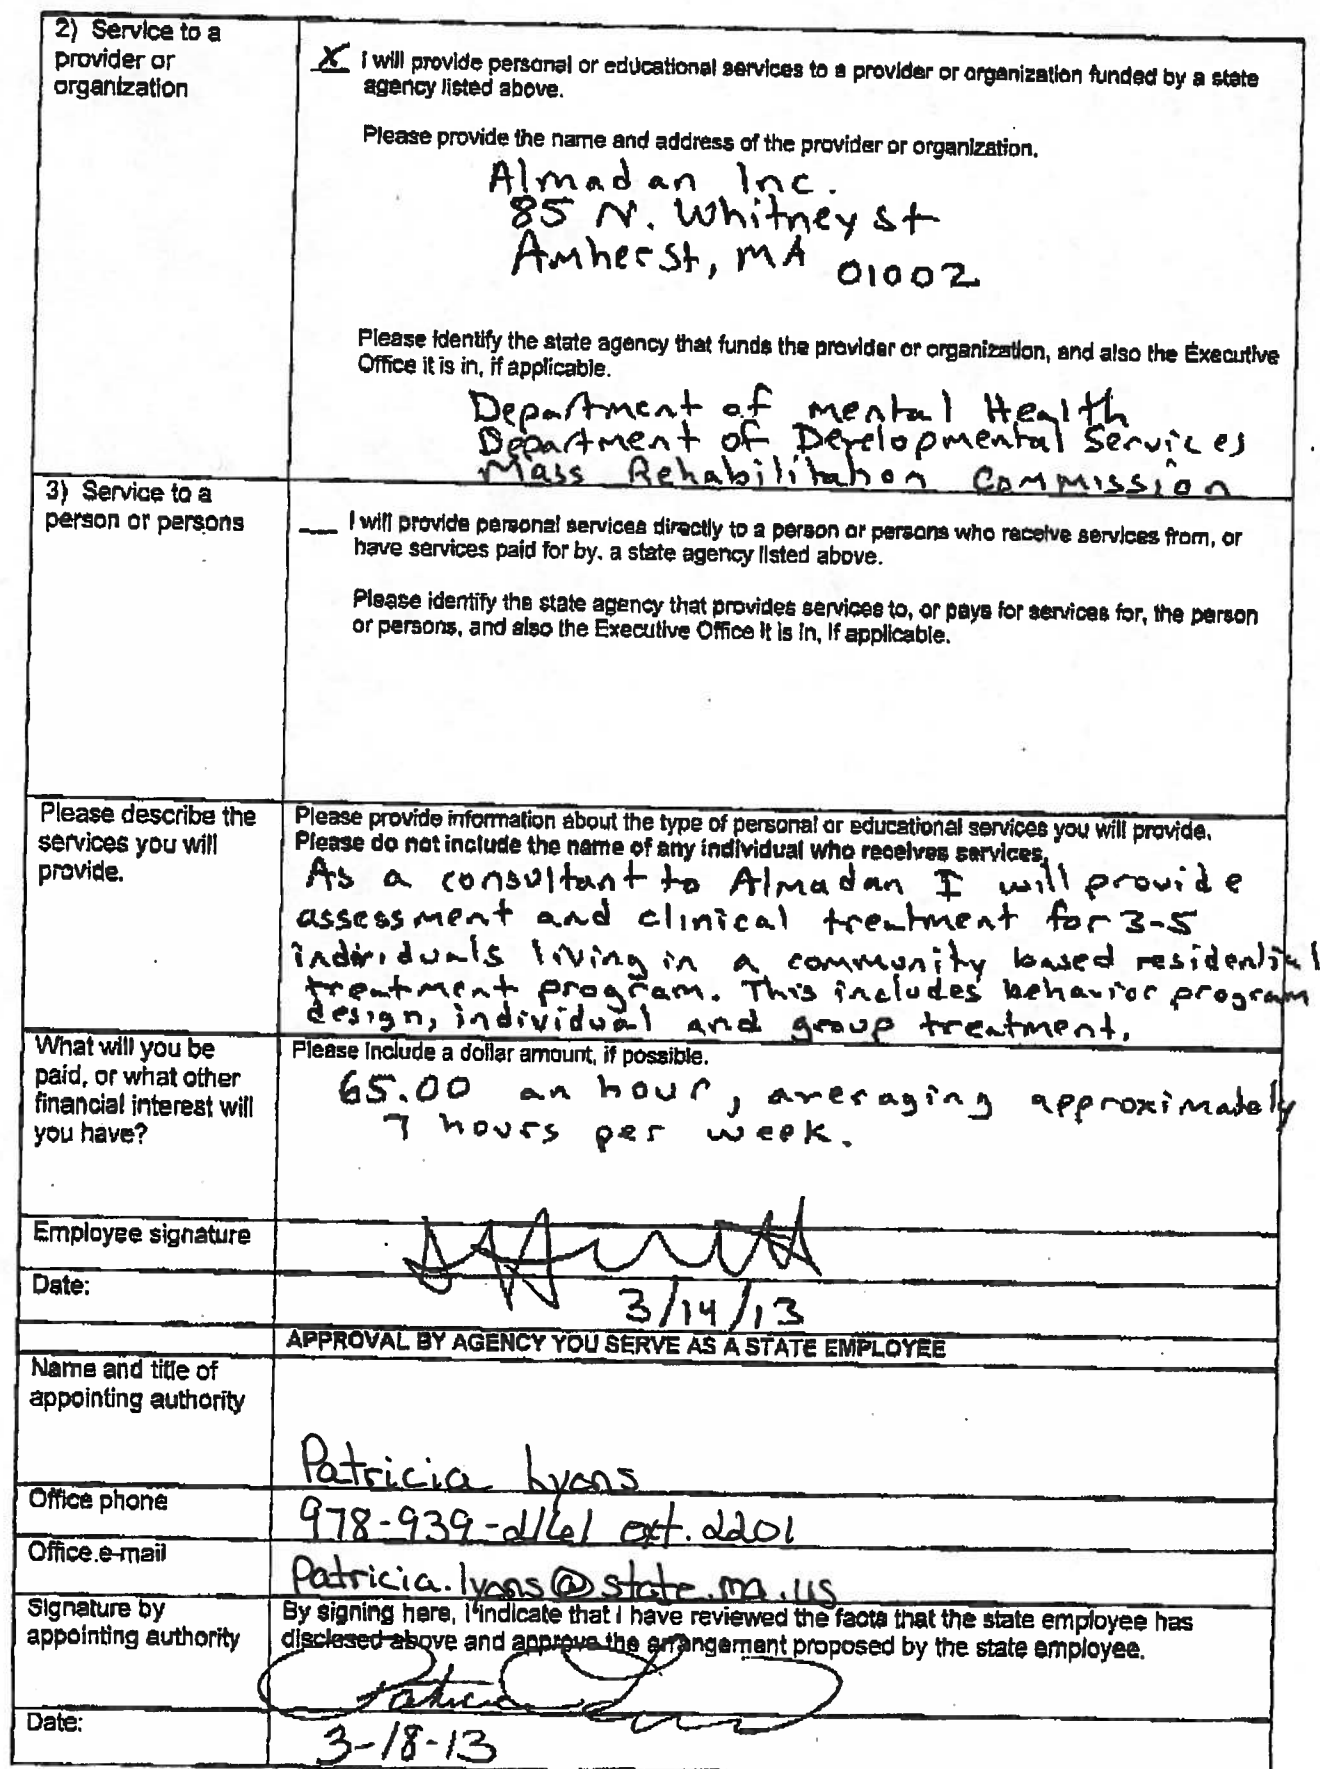 2) Service to a
provider or
organization
X I will provide personal or educational services to a provider or organization funded by a state
agency listed above.
Please provide the name and address of the provider or organization.
Almadan Inc.
85 N. Whitney St
Amherst, MA 01002
Please identify the state agency that funds the provider or organization, and also the Executive
Office it is in, if applicable.
Department of Mental Health
Department of Developmental Services
Mass Rehabilitation Commission
3) Service to a
person or persons
___ I will provide personal services directly to a person or persons who receive services from, or
have services paid for by, a state agency listed above.
Please identify the state agency that provides services to, or pays for services for, the person
or persons, and also the Executive Office it is in, if applicable.
Please describe the
services you will
provide.
Please provide information about the type of personal or educational services you will provide.
Please do not include the name of any individual who receives services.
As a consultant to Almadan I will provide
assessment and clinical treatment for 3-5
individuals living in a community based residential
treatment program. This includes behavior program
design, individual and group treatment.
What will you be
paid, or what other
financial interest will
you have?
Please include a dollar amount, if possible.
65.00 an hour, averaging approximately
7 hours per week.
Employee signature
Date:
3/14/13
APPROVAL BY AGENCY YOU SERVE AS A STATE EMPLOYEE
Name and title of
appointing authority
Patricia Lyons
Office phone
978-939-2161 ext. 2201
Office e-mail
Patricia.lyons@state.ma.us
Signature by
appointing authority
By signing here, I indicate that I have reviewed the facts that the state employee has
disclosed above and approve the arrangement proposed by the state employee.
Patricia
Date:
3-18-13